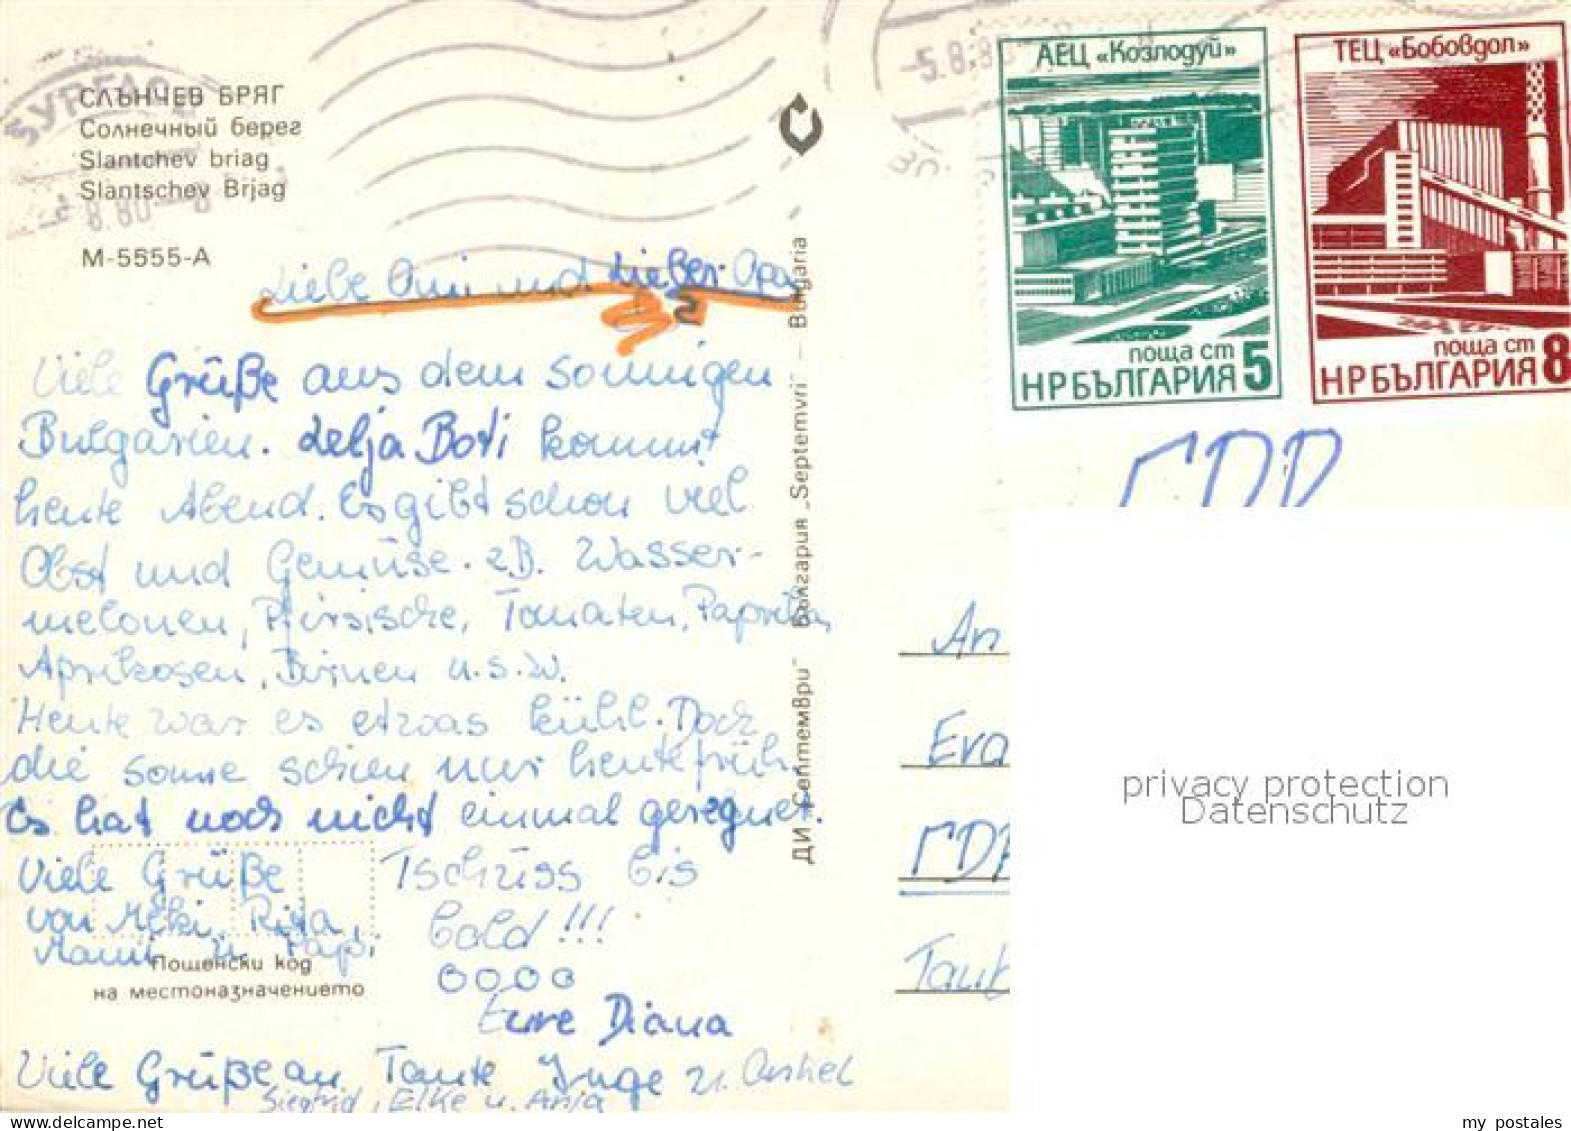 СЛЪНЧЕВ БРЯГ
Солнечный берег
Slantchev briag
Slantschev Brjag
М-5555-А
БУРГАС
8.80-8
-5.8.80
АЕЦ «Козлодуй»
поща ст 5
НРБЪЛГАРИЯ
ТЕЦ «Бобовдол»
поща ст 8
НРБЪЛГАРИЯ
Liebe Omi und Lieber Opa
Viele Grüße aus dem sonnigen
Bulgarien. Lelja Boti kommt
heute Abend. Es gibt schon viel
Obst und Gemüse. z.B. Wasser-
melonen, Pfirsische, Tomaten, Paprika,
Aprikosen, Birnen u.s.w.
Heute war es etwas kühl. Doch
die sonne schien nur heute früh.
Es hat noch nicht einmal geregnet.
Viele Grüße
von Miki, Rita,
Mami u. Papi
Tschüss bis
bald!!!
0000
Eure Diana
Viele Grüße an Tante Inge u. Onkel
Siegfrid, Elke u. Anja
Пощенски код
на местоназначението
ДИ „Септември" България „Septemvri" – Bulgaria
ГДР
An
Eva
ГДР
Taub
privacy protection
Datenschutz
my_postales